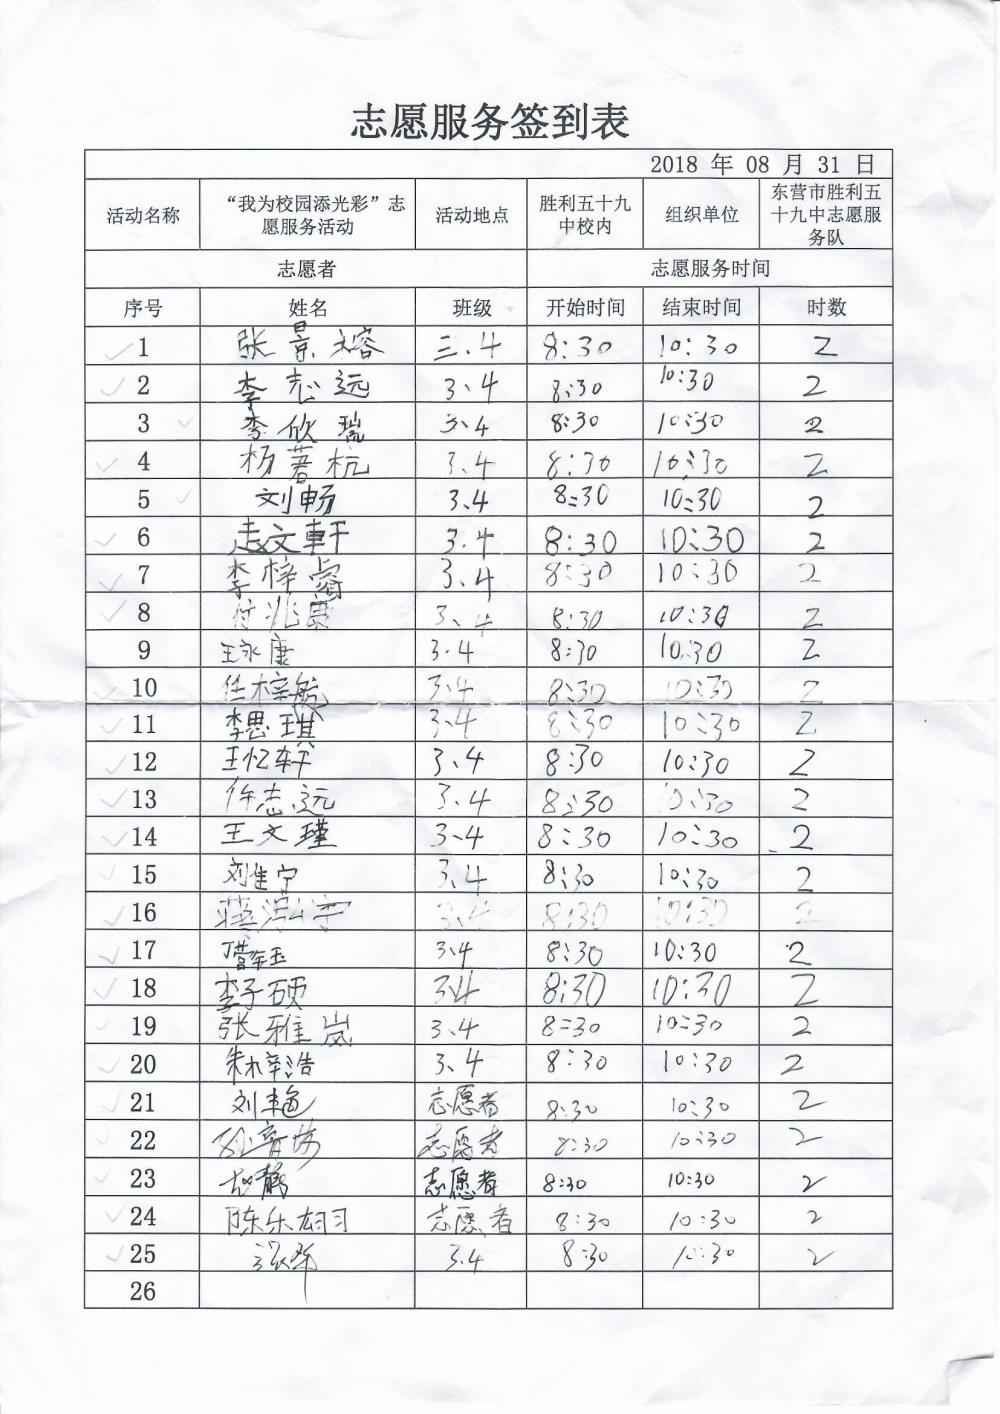 志愿服务签到表
2018 年 08 月 31 日
活动名称 “我为校园添光彩”志愿服务活动 活动地点 胜利五十九中校内 组织单位 东营市胜利五十九中志愿服务队
志愿者 志愿服务时间
序号 姓名 班级 开始时间 结束时间 时数
1 张景榕 三.4 8:30 10:30 2
2 李志远 3.4 8:30 10:30 2
3 李欣瑞 3.4 8:30 10:30 2
4 杨著杭 3.4 8:30 10:30 2
5 刘畅 3.4 8:30 10:30 2
6 文軒 3.4 8:30 10:30 2
7 李梓睿 3.4 8:30 10:30 2
8 付兆晨 3.4 8:30 10:30 2
9 王永康 3.4 8:30 10:30 2
10 任梓毓 3.4 8:30 10:30 2
11 李思琪 3.4 8:30 10:30 2
12 王忆轩 3.4 8:30 10:30 2
13 许志远 3.4 8:30 10:30 2
14 王文瑾 3.4 8:30 10:30 2
15 刘佳宁 3.4 8:30 10:30 2
16 3.4 8:30 10:30 2
17 3.4 8:30 10:30 2
18 李子硕 3.4 8:30 10:30 2
19 张雅岚 3.4 8:30 10:30 2
20 朱梓浩 3.4 8:30 10:30 2
21 刘 志愿者 8:30 10:30 2
22 志愿者 8:30 10:30 2
23 志愿者 8:30 10:30 2
24 陈乐翔 志愿者 8:30 10:30 2
25 3.4 8:30 10:30 2
26